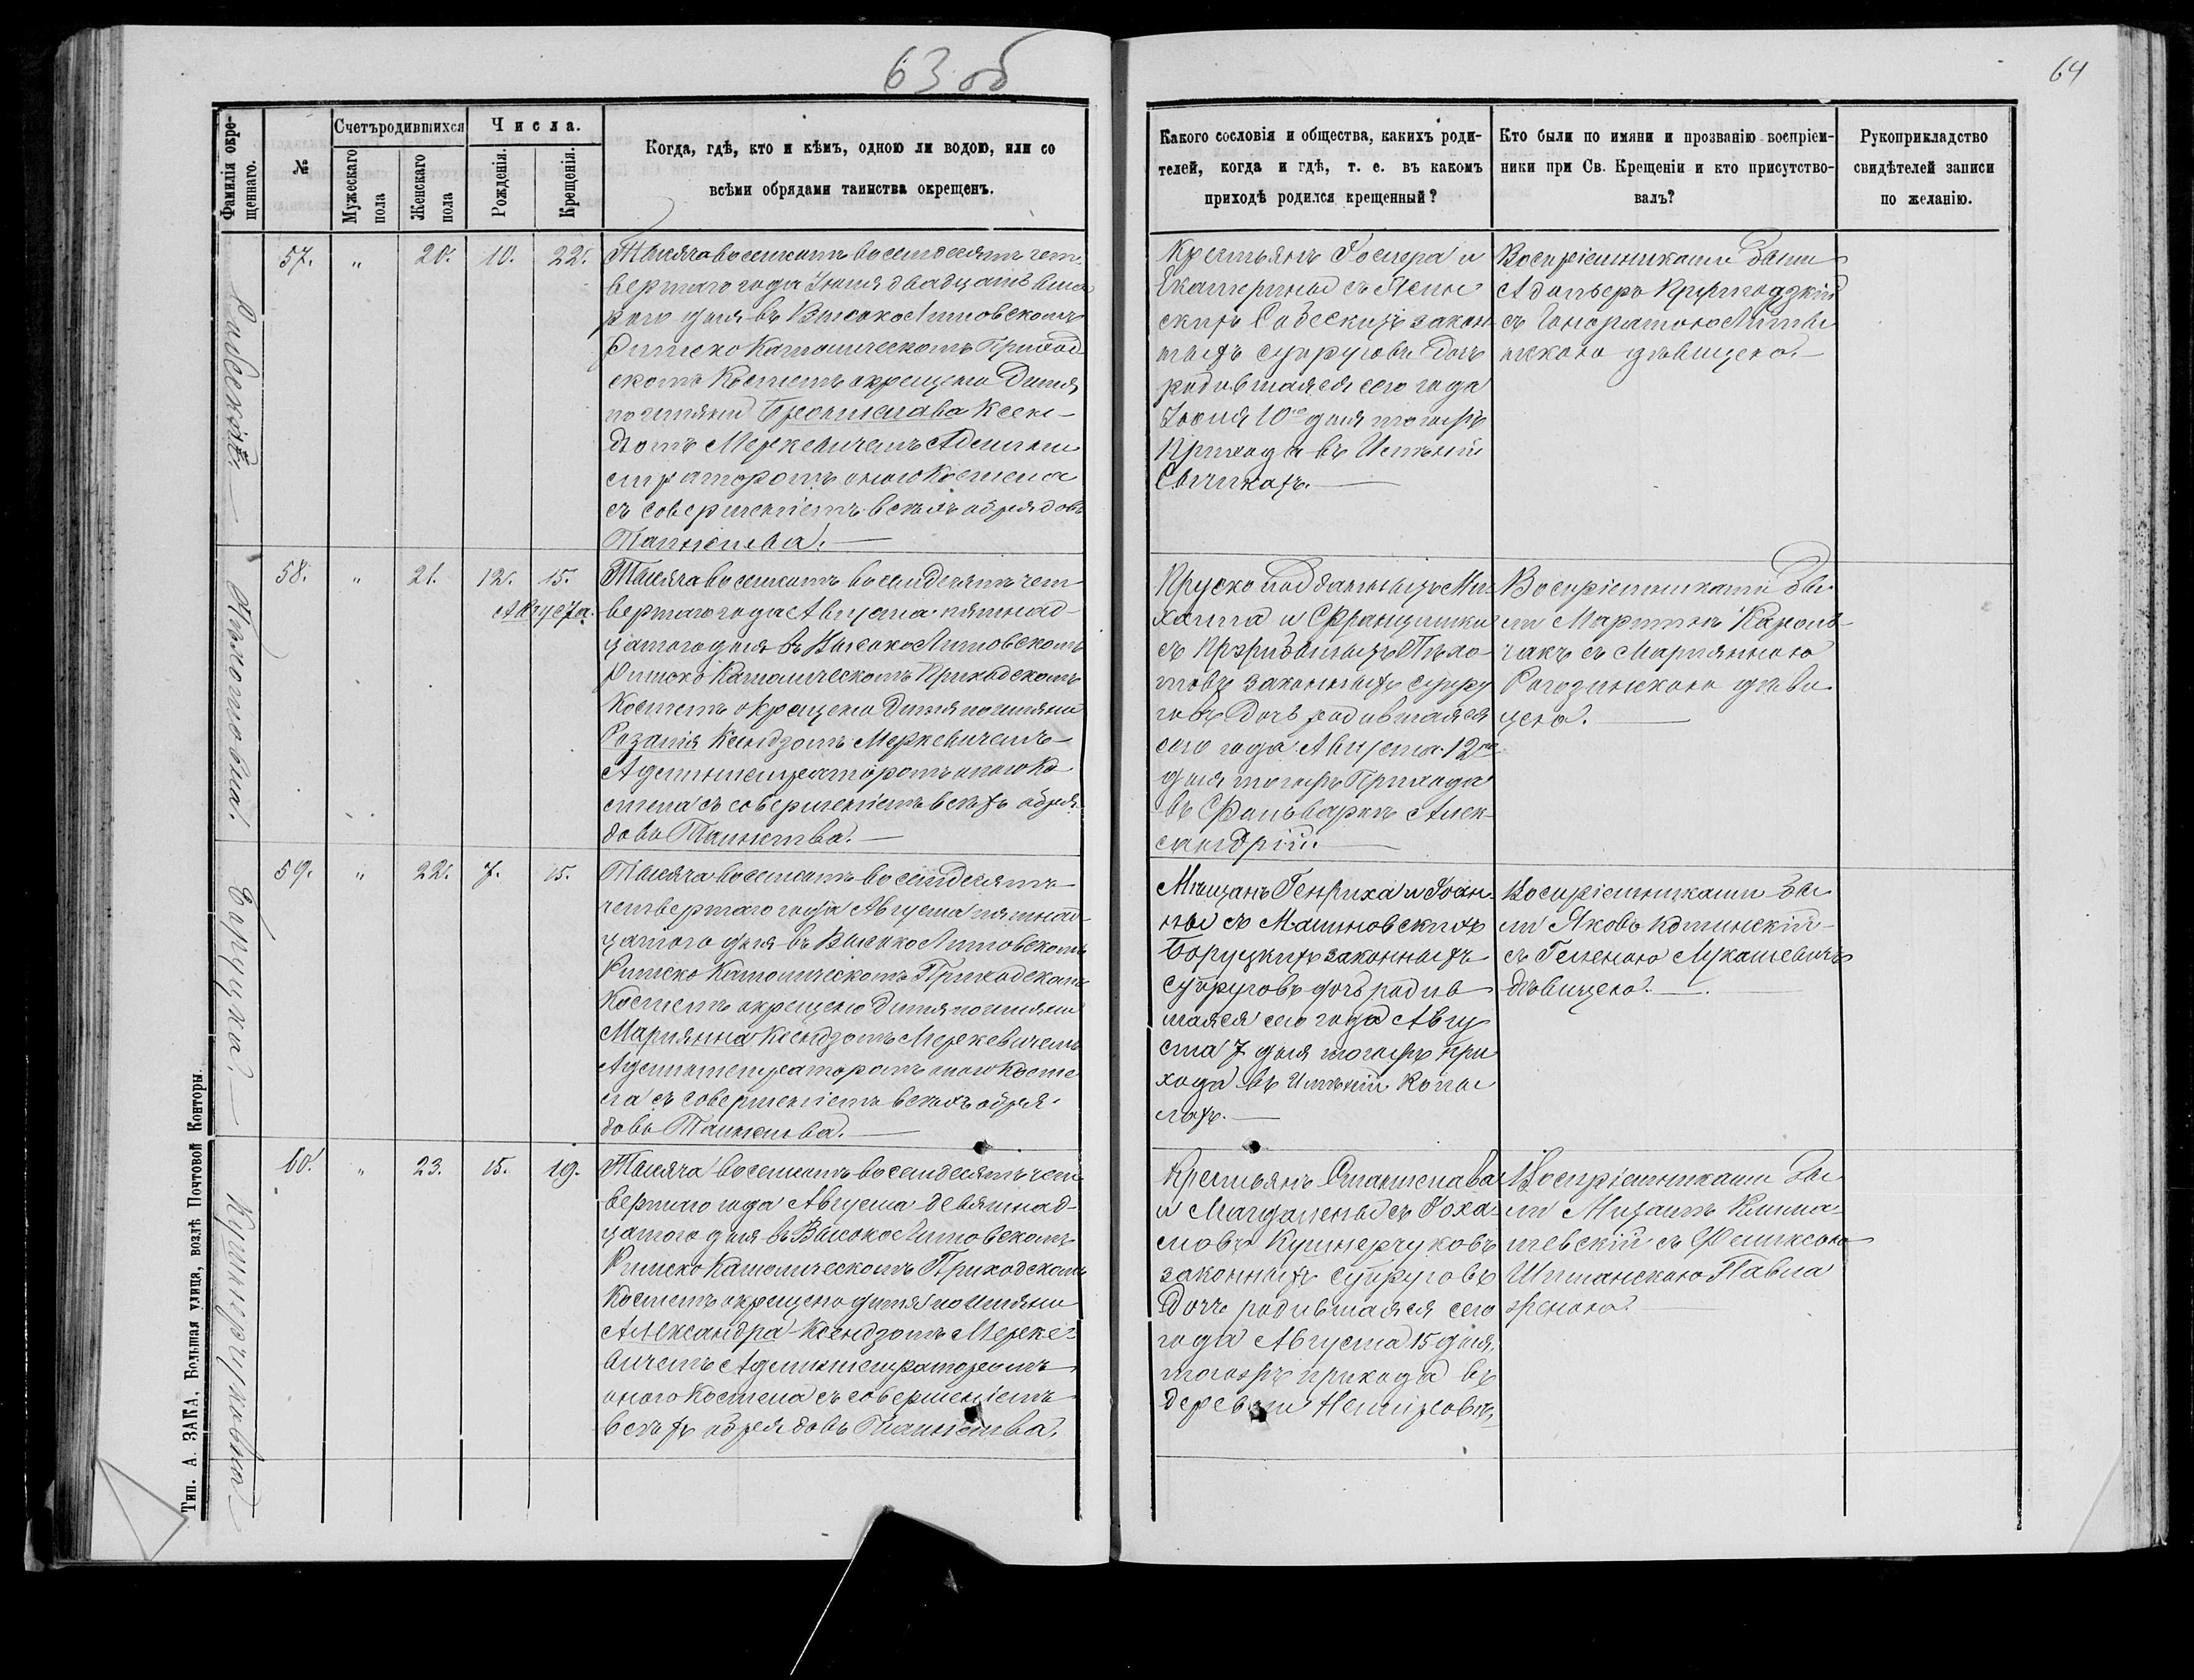 63 об
64
Фамилія окрещеннаго.
№
Счетъ родившихся
Мужескаго пола
Женскаго пола
Числа.
Рожденія.
Крещенія.
Когда, гдѣ, кто и кѣмъ, одною ли водою, или со
всѣми обрядами таинства окрещенъ.
Какого сословія и общества, какихъ роди-
телей, когда и гдѣ, т. е. въ какомъ
приходѣ родился крещенный?
Кто были по имяни и прозванію воспріем-
ники при Св. Крещеніи и кто присутство-
валъ?
Рукоприкладство
свидѣтелей записи
по желанію.
57. " 20. 10. 22.
Тысяча восемьсотъ восемдесятъ чет-
вертаго года Іюля двадцать вто
раго дня въ Высоко Литовскомъ
Римско Католическомъ Приход
скомъ Костелѣ окрещено Дитя
по имяни Брониславa Ксен-
дзомъ Меркевичемъ Админи
страторомъ оного Костела
съ совершеніемъ всѣхъ обрядовъ
Таинства.
Крестьянъ и
Екатерины съ
законныхъ супруговъ Дочь
родившаяся сего года
Іюля 10го дня тогожъ
Прихода въ Имѣніи
Воспріемниками были
съ
дѣвицею.
58. " 21. 12. 15.
Августа.
Тысяча восемьсотъ восемдесятъ чет
вертаго года Августа пятнад-
цатого дня въ Высоко Литовскомъ
Римско Католическомъ Приходскомъ
Костелѣ окрещено Дитя по имяни
Розалія Ксендзомъ Меркевичемъ
Администраторомъ оного Ко
стела съ совершеніемъ всѣхъ обря
довъ Таинства.
Пруско подданныхъ Ми
хаила и Францишки
съ
законныхъ супру
говъ Дочь родившаяся
сего года Августа 12го
дня тогожъ Прихода
въ Фольваркѣ Алек-
сандріи.
Воспріемниками бы
ли Мартинъ Кароль-
чакъ съ Маріянною
Рогозинскою дѣви
цею.
Боруцка.
59. " 22. 7. 15.
Тысяча восемьсотъ восемдесятъ
четвертаго года Августа пятнад-
цатого дня въ Высоко Литовскомъ
Римско Католическомъ Приходскомъ
Костелѣ окрещено Дитя по имяни
Маріянна Ксендзомъ Меркевичемъ
Администраторомъ оного Косте
ла съ совершеніемъ всѣхъ обря-
довъ Таинства.
Мѣщанъ Генриха и Іоан-
ны съ Малиновскихъ
Боруцкихъ законныхъ
супруговъ дочь родив
шаяся сего года Авгу
ста 7 дня тогожъ при
хода въ Имѣніи Копы
лахъ.
Воспріемниками бы
ли Яковъ
съ Геленою Лукашевичъ
дѣвицею.
Кушнерчуковна
60. " 23. 15. 19.
Тысяча восемьсотъ восемдесятъ чет
вертаго года Августа девятнад-
цатого дня въ Высоко Литовскомъ
Римско Католическомъ Приходскомъ
Костелѣ окрещено дитя по имяни
Александра Ксендзомъ Мерке-
вичемъ Администраторомъ
оного Костела съ совершеніемъ
всѣхъ обрядовъ Таинства.
Крестьянъ Станислава
и Магдалены съ
Кушнерчуковъ
законныхъ супруговъ
Дочь родившаяся сего
года Августа 15 дня,
тогожъ прихода въ
деревни
Воспріемниками бы
ли Михаилъ Клима-
шевскій съ Феликсою
Шиманскою Павла
женою.
Тип. А. ЗАКА, Большая улица, возлѣ Почтовой Конторы.